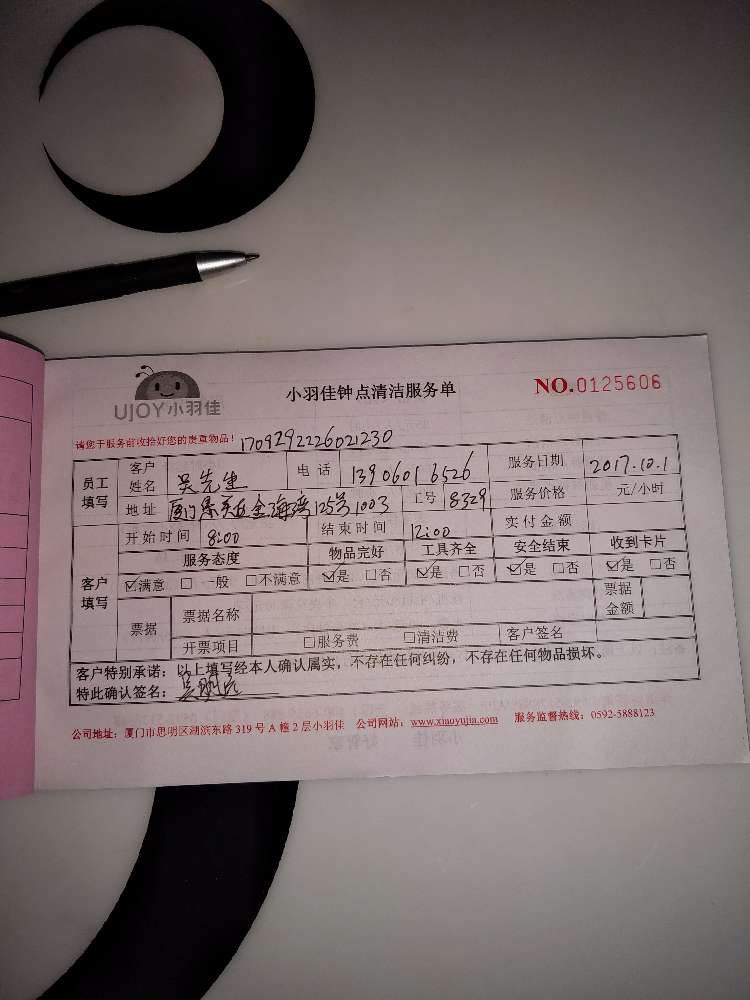 UJOY小羽佳
小羽佳钟点清洁服务单
NO.0125606
请您于服务前收拾好您的贵重物品! 1709292226021230
员工填写 客户姓名 吴先生 电话 13906016526 服务日期 2017.10.1
地址 125号1003 工号 8329 服务价格 元/小时
客户填写 开始时间 8:00 结束时间 12:00 实付金额
服务态度 物品完好 工具齐全 安全结束 收到卡片
☑满意 □一般 □不满意 ☑是 □否 ☑是 □否 ☑是 □否 ☑是 □否
票据 票据名称 票据金额
开票项目 □服务费 □清洁费 客户签名
客户特别承诺:以上填写经本人确认属实,不存在任何纠纷,不存在任何物品损坏。
特此确认签名:
公司地址:厦门市思明区湖滨东路 319 号 A 幢 2 层小羽佳 公司网站:www.xiaoyujia.com 服务监督热线:0592-5888123